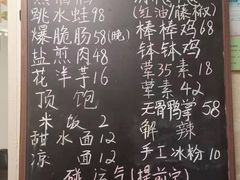 跳水蛙98
爆脆肠58(晚)
盐煎肉48
花洋芋16
顶饱
米饭2
甜水面12
凉面12
(红油/藤椒)
棒棒鸡68
钵钵鸡
荤35素18
荤43素
无骨鸭掌58
解辣
手工冰粉10
碰运气(提前定)